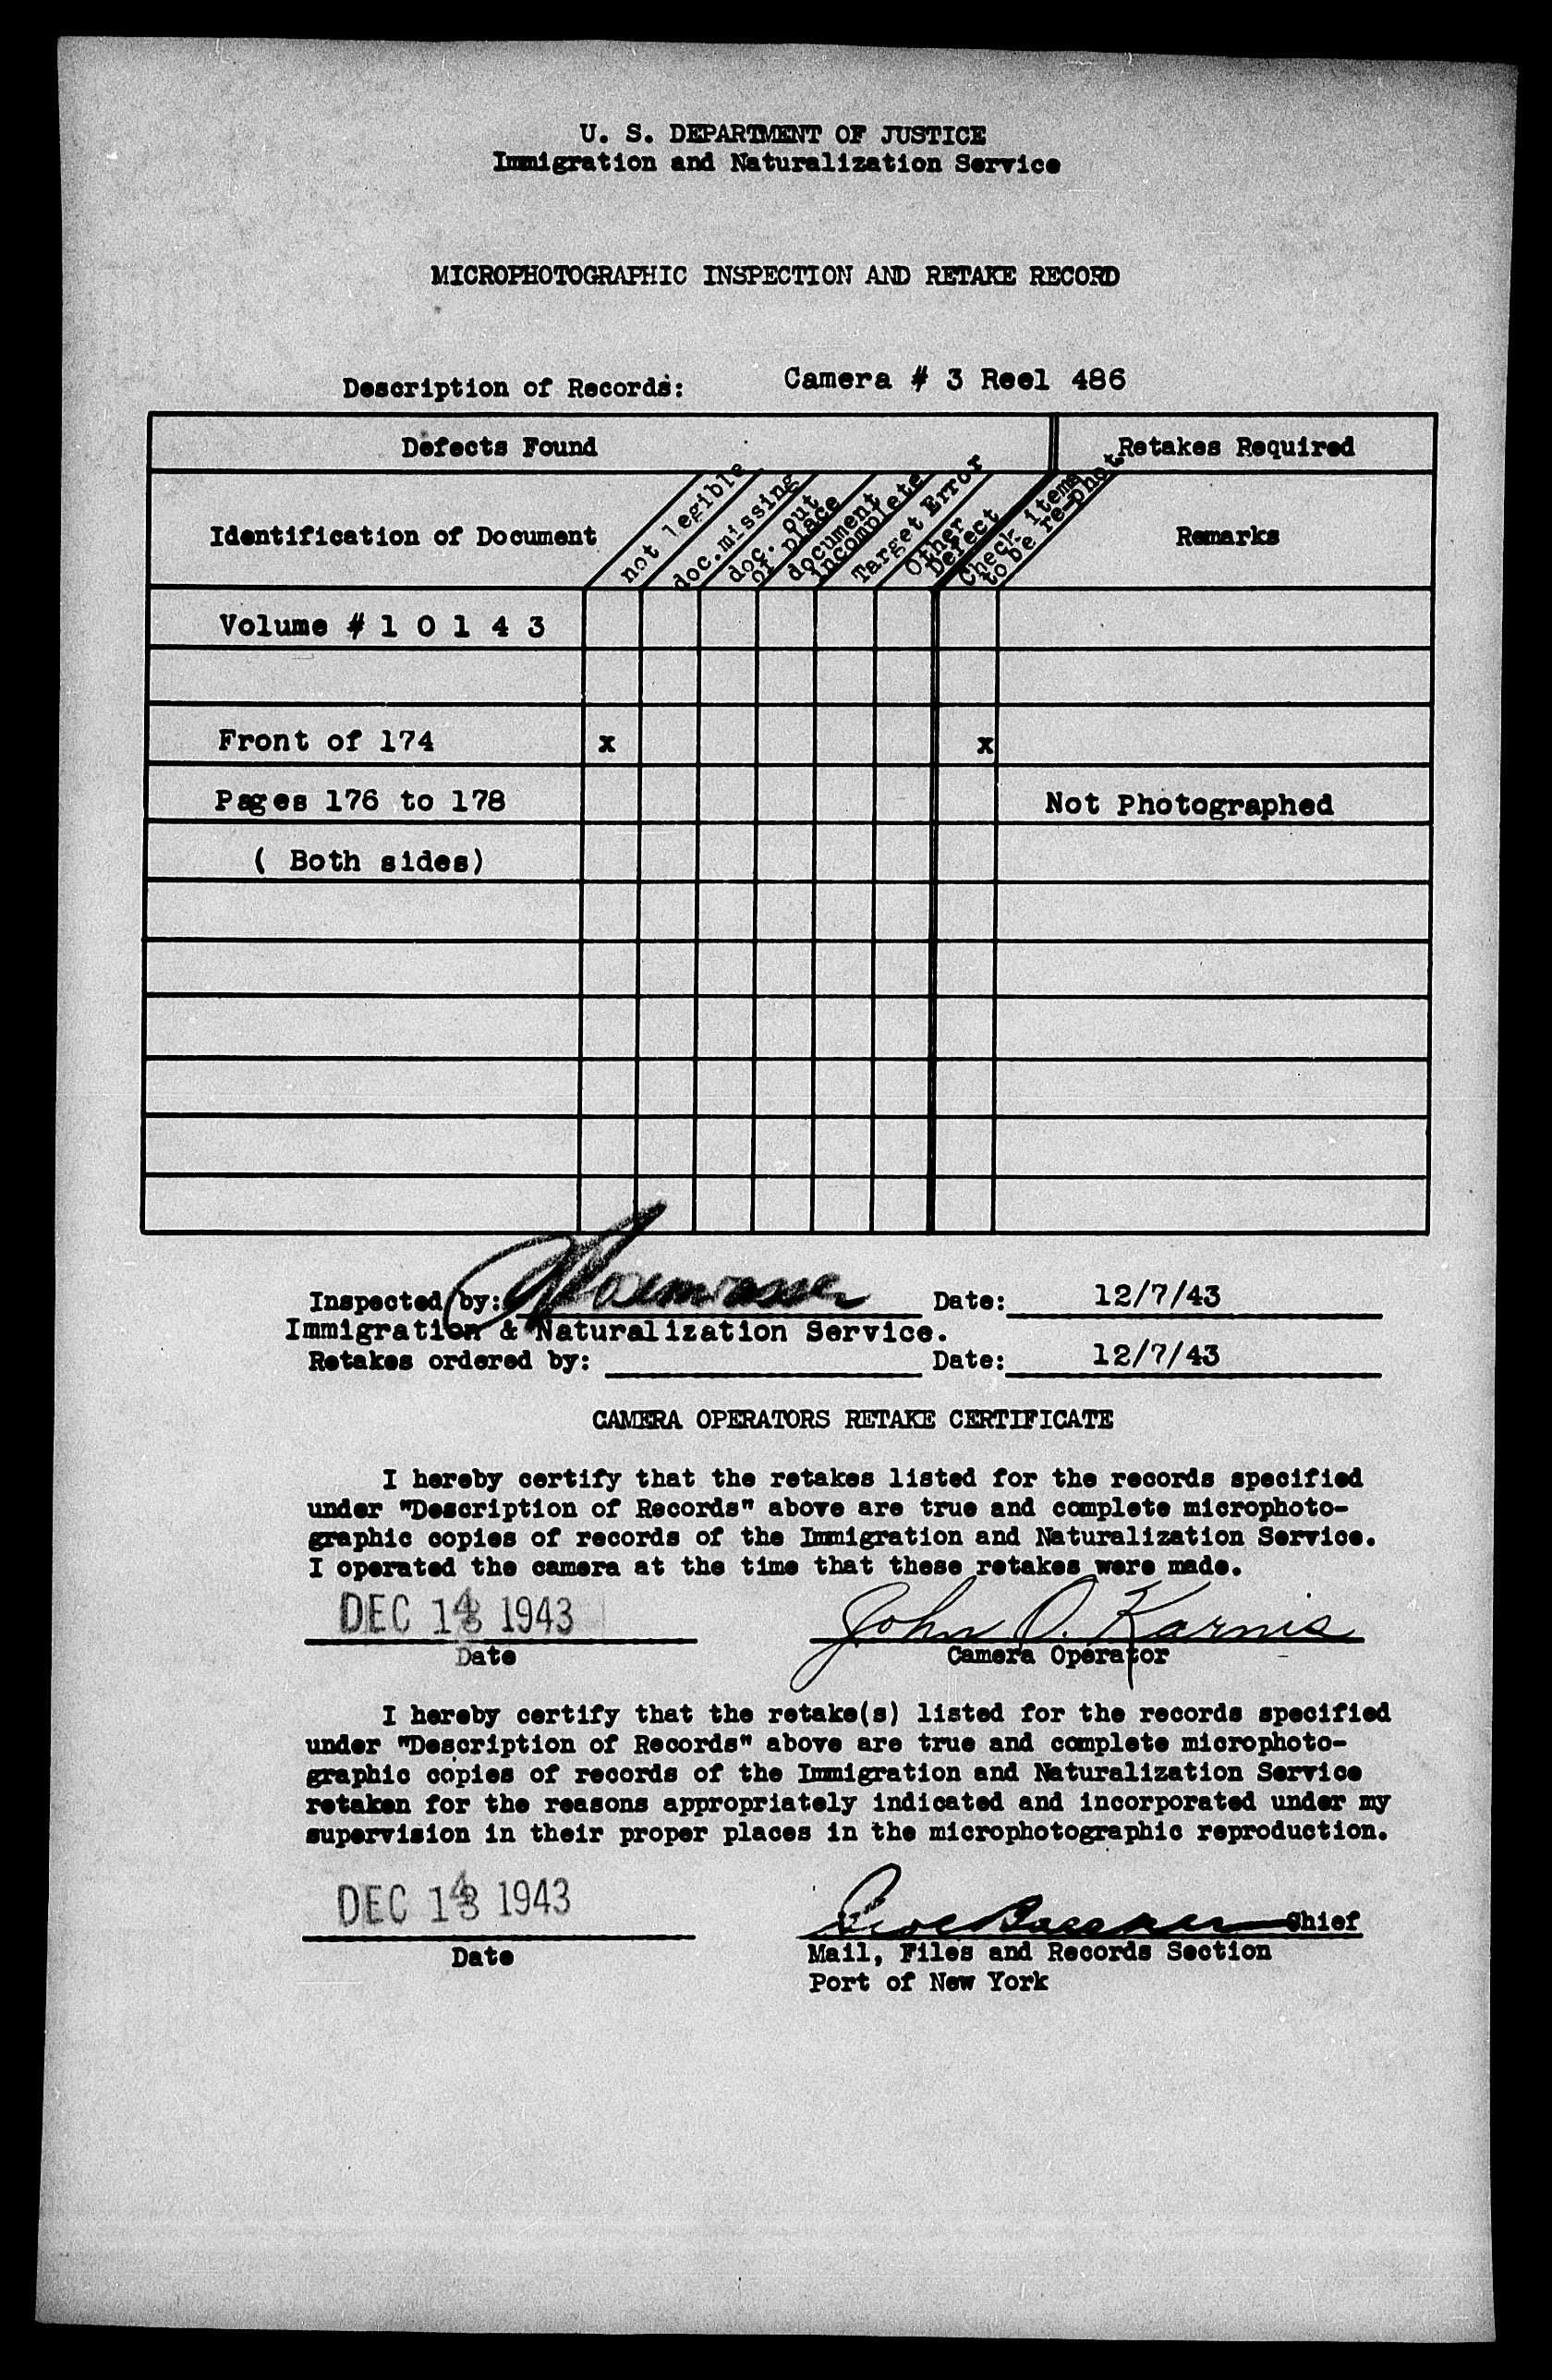 U. S. DEPARTMENT OF JUSTICE
Immigration and Naturalization Service
MICROPHOTOGRAPHIC INSPECTION AND RETAKE RECORD
Description of Records: Camera # 3 Reel 486
Defects Found Retakes Required
Identification of Document not legible doc. missing doc. out of place document incomplete Target Error Other Defect Check items to be re-phot Remarks
Volume # 1 0 1 4 3
Front of 174 x x
Pages 176 to 178 Not Photographed
( Both sides)
Inspected by: Date: 12/7/43
Immigration & Naturalization Service.
Retakes ordered by: Date: 12/7/43
CAMERA OPERATORS RETAKE CERTIFICATE
I hereby certify that the retakes listed for the records specified
under "Description of Records" above are true and complete microphoto-
graphic copies of records of the Immigration and Naturalization Service.
I operated the camera at the time that these retakes were made.
DEC 1 1943 John O. Karnis
Date Camera Operator
I hereby certify that the retake(s) listed for the records specified
under "Description of Records" above are true and complete microphoto-
graphic copies of records of the Immigration and Naturalization Service
retaken for the reasons appropriately indicated and incorporated under my
supervision in their proper places in the microphotographic reproduction.
DEC 1 1943 Chief
Date Mail, Files and Records Section
Port of New York